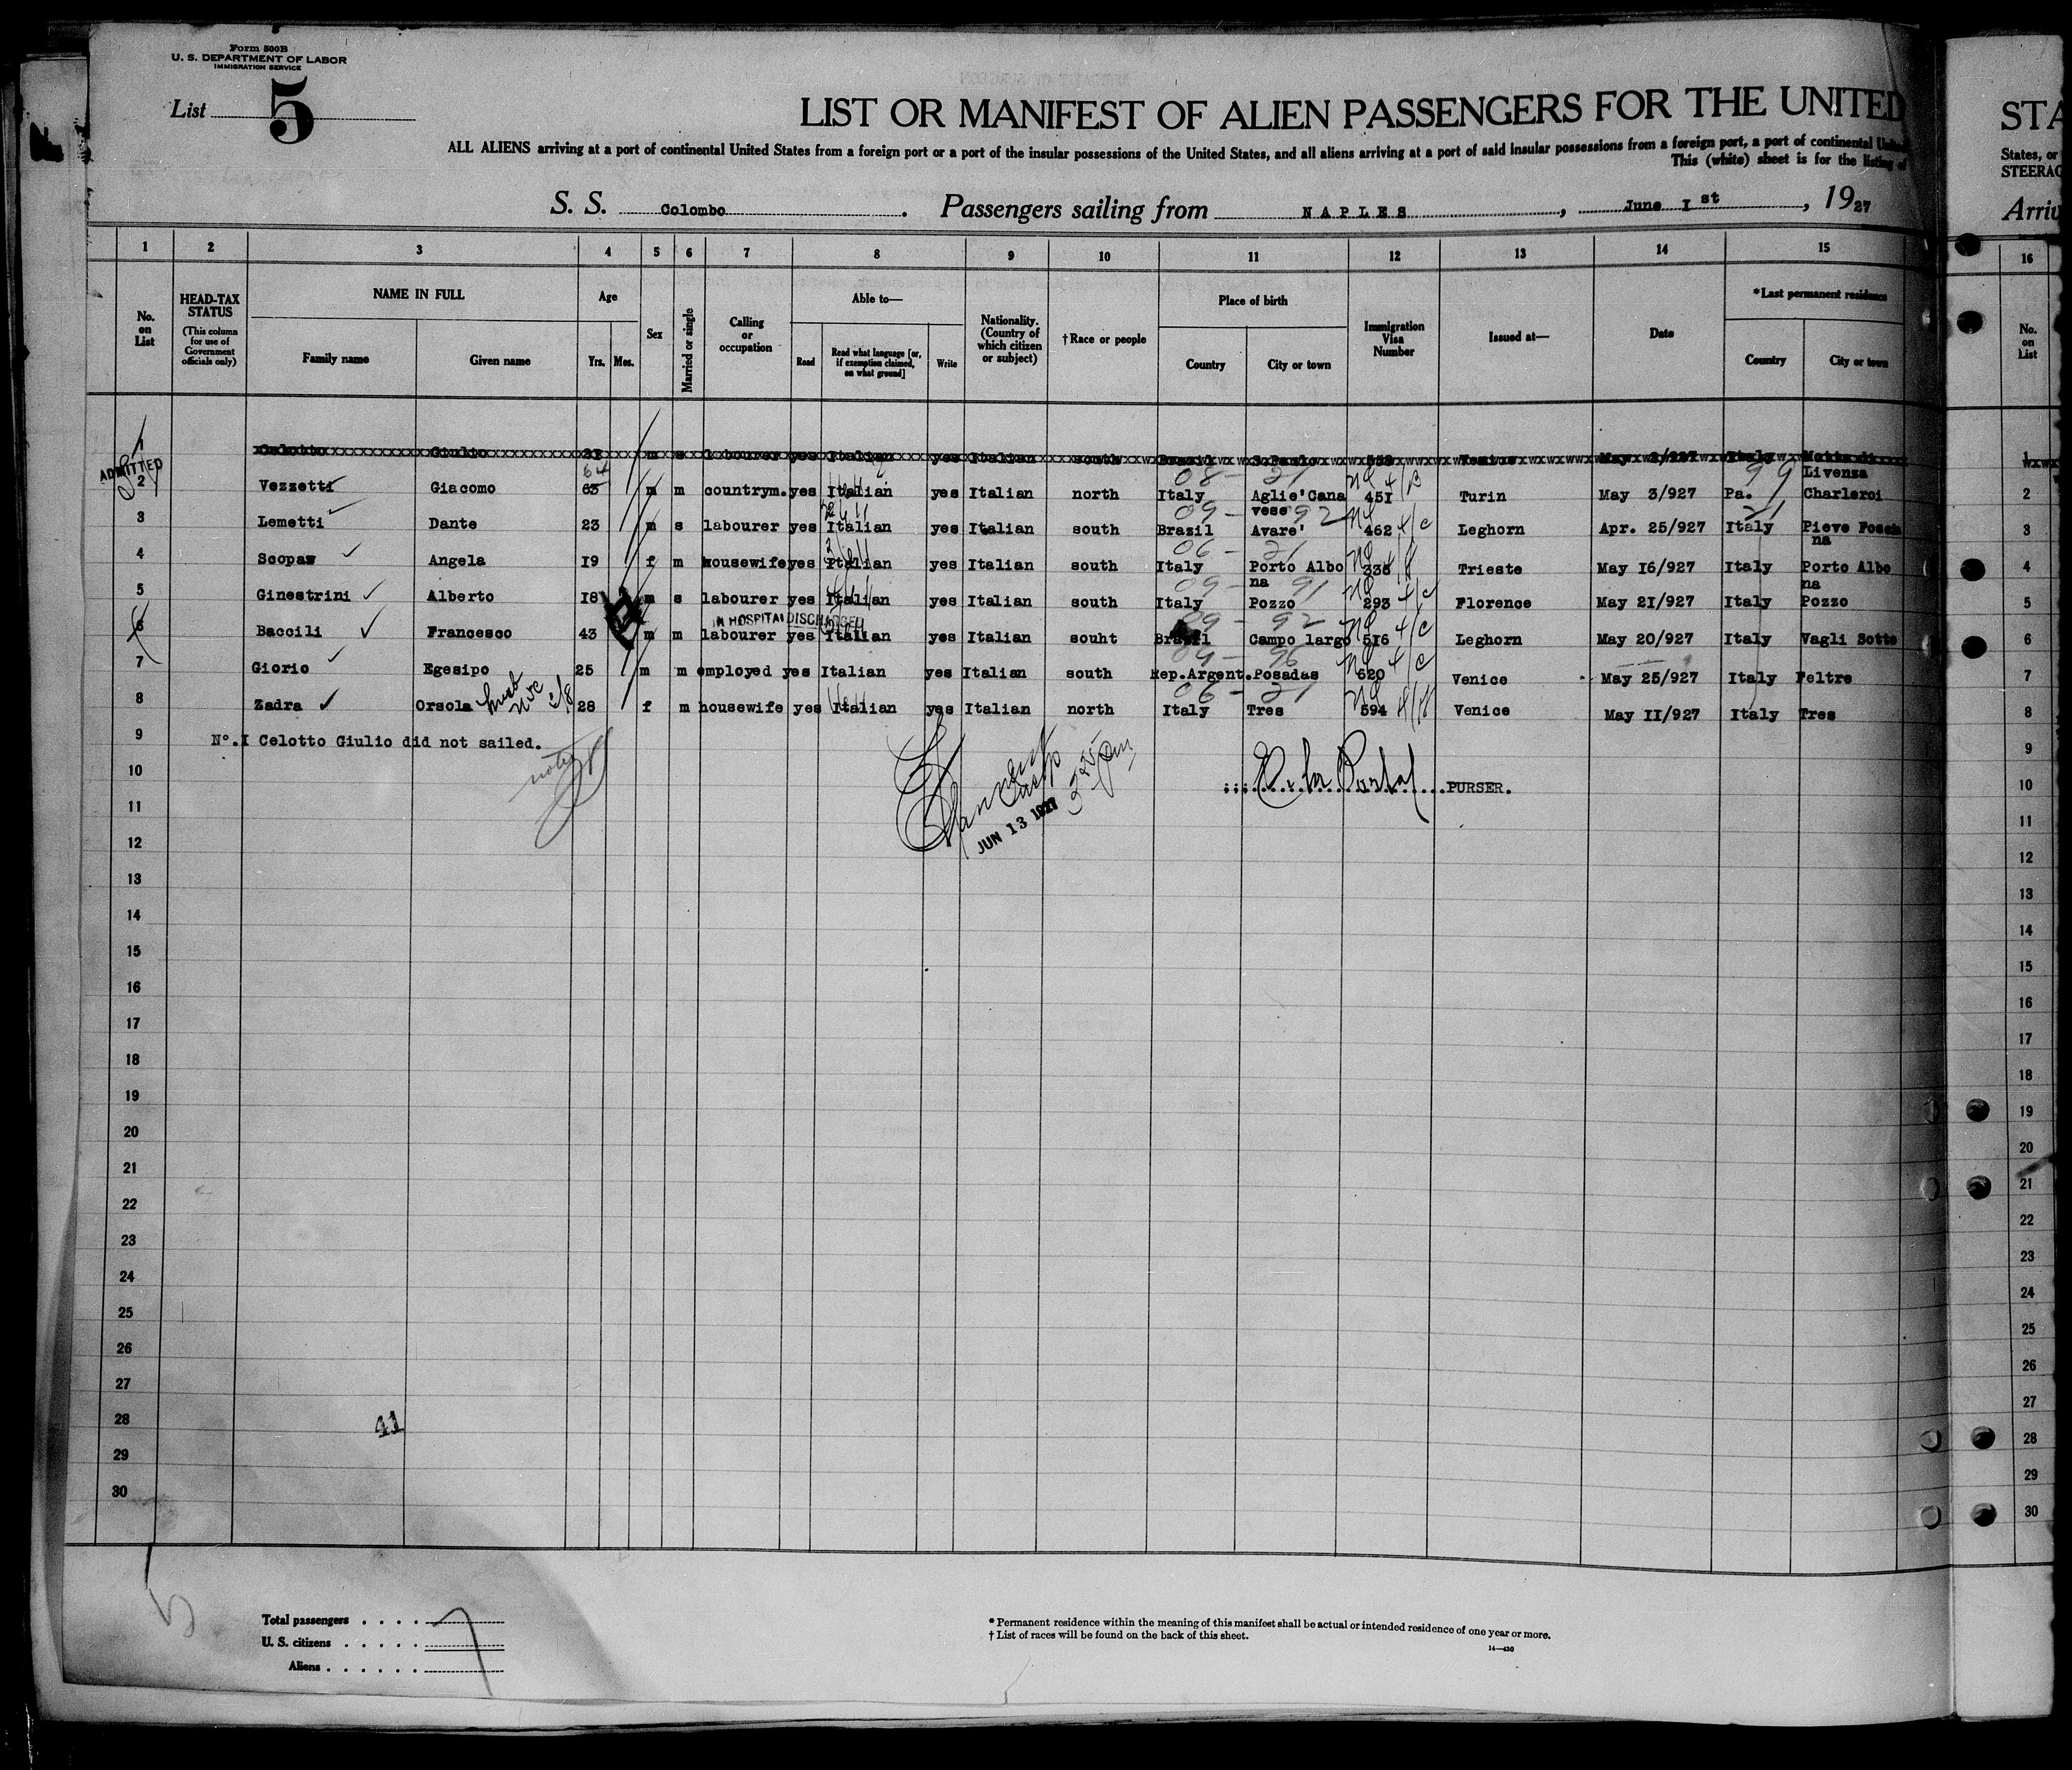 Form 500B
U. S. DEPARTMENT OF LABOR
IMMIGRATION SERVICE
List 5
LIST OR MANIFEST OF ALIEN PASSENGERS FOR THE UNITED
STA
ALL ALIENS arriving at a port of continental United States from a foreign port or a port of the insular possessions of the United States, and all aliens arriving at a port of said insular possessions from a foreign port, a port of continental
States, or
This (white) sheet is for the listing of
STEERAG
S. S. Colombo. Passengers sailing from NAPLES, June Ist, 1927
Arriv
1 2 3 4 5 6 7 8 9 10 11 12 13 14 15 16
No. on List
HEAD-TAX STATUS
(This column for use of Government officials only)
NAME IN FULL
Family name Given name
Age
Yrs. Mos.
Sex
Married or single
Calling or occupation
Able to—
Read
Read what language [or, if exemption claimed, on what ground]
Write
Nationality. (Country of which citizen or subject)
†Race or people
Place of birth
Country City or town
Immigration Visa Number
Issued at—
Date
*Last permanent residence
Country City or town
No. on List
1 Celotto Giulio 21 m s labourer yes Italian yes Italian south Brazil S.Paulo May Italy Motta di 1
Livenza
ADMITTED
64
2 Vezzetti Giacomo 63 m m countrym. yes Italian yes Italian north Italy Aglie'Cana 451 Turin May 3/927 Pa. Charleroi 2
08- 21 NQ 4/B 99
vese
3 Lemetti Dante 23 m s labourer yes Italian yes Italian south Brazil Avare' 462 Leghorn Apr. 25/927 Italy Pieve Foscia 3
09- 92 NQ 4/c 21
na
4 Scopaz Angela 19 f m housewife yes Italian yes Italian south Italy Porto Albo 336 Trieste May 16/927 Italy Porto Albo 4
06- 21
na na
5 Ginestrini Alberto 18 m s labourer yes Italian yes Italian south Italy Pozzo 293 Florence May 21/927 Italy Pozzo 5
09- 91 NQ 4/c
IN HOSPITAL DISCHARGED
6 Baccili Francesco 43 m m labourer yes Italian yes Italian souht Brazil Campo largo 516 Leghorn May 20/927 Italy Vagli Sotto 6
09- 92 NQ 4/c
7 Giorio Egesipo 25 m m employed yes Italian yes Italian south Rep.Argent. Posadas 620 Venice May 25/927 Italy Feltre 7
09- 96 NQ 4/c
8 Zadra Orsola 28 f m housewife yes Italian yes Italian north Italy Tres 594 Venice May 11/927 Italy Tres 8
06- 21 NQ
9 N°.I Celotto Giulio did not sailed. 9
10 PURSER. 10
JUN 13 1927
11 11
12 12
13 13
14 14
15 15
16 16
17 17
18 18
19 19
20 20
21 21
22 22
23 23
24 24
25 25
26 26
27 27
28 41 28
29 29
30 30
5
Total passengers . . . . 7
U. S. citizens . . . . .
Aliens . . . . . .
* Permanent residence within the meaning of this manifest shall be actual or intended residence of one year or more.
† List of races will be found on the back of this sheet.
14—430